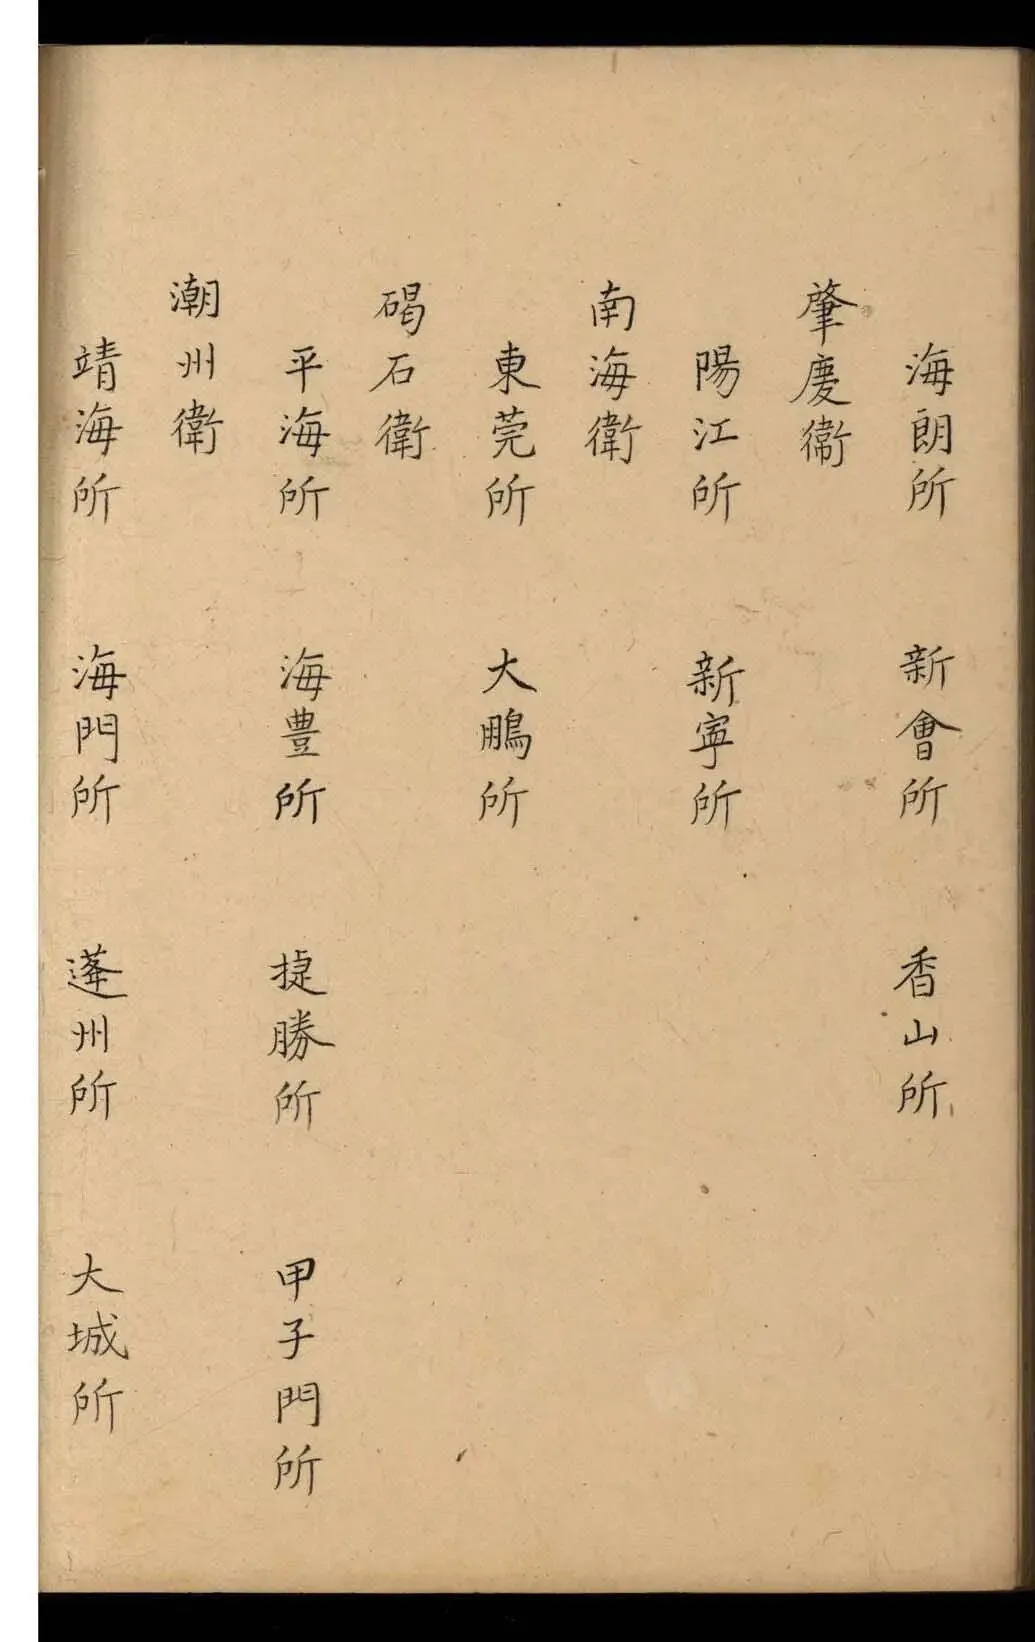 海朗所 新會所 香山所
肇慶衞
陽江所 新寧所
南海衛
東莞所 大鵬所
碣石衛
平海所 海豊所 捷勝所 甲子門所
潮州衛
靖海所 海門所 蓬州所 大城所